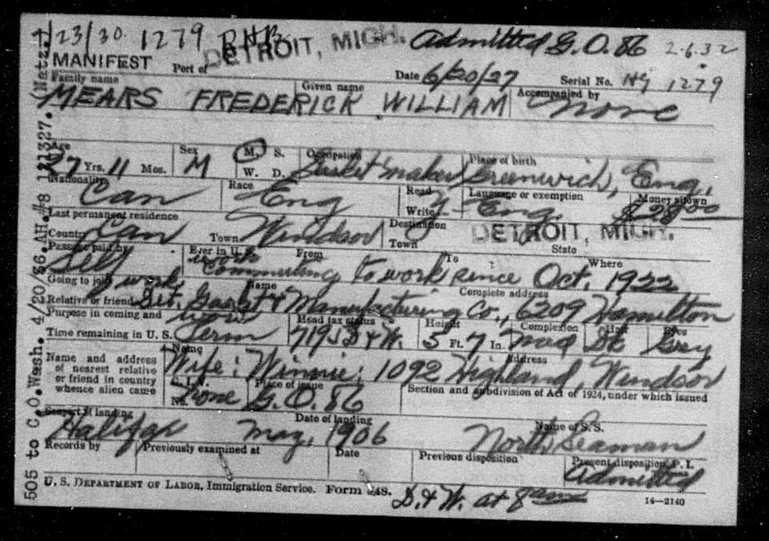 1/23/30 1279 DETROIT, MICH. Admitted G.O. 86 2-6-32
MANIFEST Port of Date 6/20/27 Serial No. 1279
Family name Given name Accompanied by
MEARS FREDERICK WILLIAM None
Age Sex M. S. Occupation Place of birth
27 Yrs. 11 Mos. M W. D. Gasket maker Greenwich, Eng.
Nationality Race Read Language or exemption Money shown
Can Eng Write Y Eng. $28.00
Last permanent residence Destination DETROIT, MICH.
Country Can Town Windsor Town State
Passage paid by Ever in U.S. From To Where
Self Commuting to work since Oct. 1922
Going to join Name Complete address
Relative or friend Det. Gasket & Manufacturing Co., 6209 Hamilton
Purpose in coming and work Head tax status Height Complexion Hair Eyes
Time remaining in U.S. Perm 719J D & W. 5 Ft. 7 In. Med Dk Grey
Name and address of nearest relative or friend in country whence alien came
Name Address
Wife: Winnie: 1092 Highland, Windsor
C.I.V. No. None Place of issue G.O. 86 Section and subdivision of Act of 1924, under which issued
Seaport of landing Date of landing Name of S.S.
Halifax May, 1906 North Seaman
Records by Previously examined at Date Previous disposition Present disposition, P.I.
Admitted
U.S. DEPARTMENT OF LABOR, Immigration Service. Form 548. D & W. at 14—2140
505 to C.O. Wash. 4/20/36. AH.#8 141327. (Natz.)